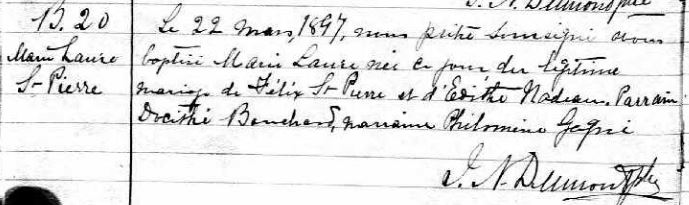 B. 20
Marie Laure
St Pierre
Le 22 mars, 1897, nous prêtre soussigné avons
baptisé Marie Laure née ce jour du légitime
mariage de Félix St Pierre et d'Edithe Nadeau. Parrain
Docithé Bouchard, marraine Philomine Gagné
J. N. Delmont Ptre